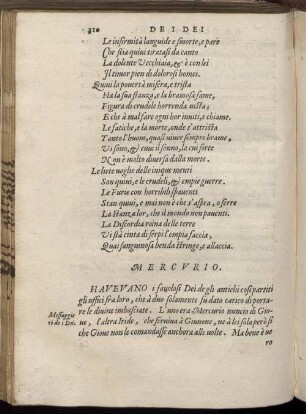 312 DE I DEI
Le infirmità languide e smorte, e pare
Che stia quiui tiratasi da canto
La dolente Vecchiaia, & è con lei
Il timor pien di dolorosi homei.
Quiui la pouertà misera, e trista
Ha la sua stanza, e la bramosa fame,
Figura di crudele horrenda uista;
E che à mal fare ogni hor inuiti, e chiame.
Le fatiche, e la morte, onde s'attrista
Tanto l'huom, quasi uiuer sempre brame,
Vi sono, & enui il sonno, la cui sorte
Non è molto diuersa dalla morte.
Le liete uoglie delle inique menti
Son quiui, e le crudeli, & empie guerre.
Le Furie con horribili spauenti
Stan quiui, e mai non è che s'apra, o serre
La stanza lor, che il mondo non pauenti.
La Discordia roina delle terre
Vi stà cinta di serpi l'empia faccia,
Qual sanguinosa benda stringe, e allaccia.
MERCVRIO.
HAVEVANO i fauolosi Dei degli antichi cosi partiti
gli uffici frà loro, che à duo solamente su dato carico di porta-
Messaggie re le diuine imbasciate. L'uno era Mercurio nuncio di Gio-
ri de i Dei. ue, l'altra Iride, che seruiua à Giunone, ne à lei sola però sì
che Gioue non le comandasse anchora alle uolte. Ma bene è ue
ro